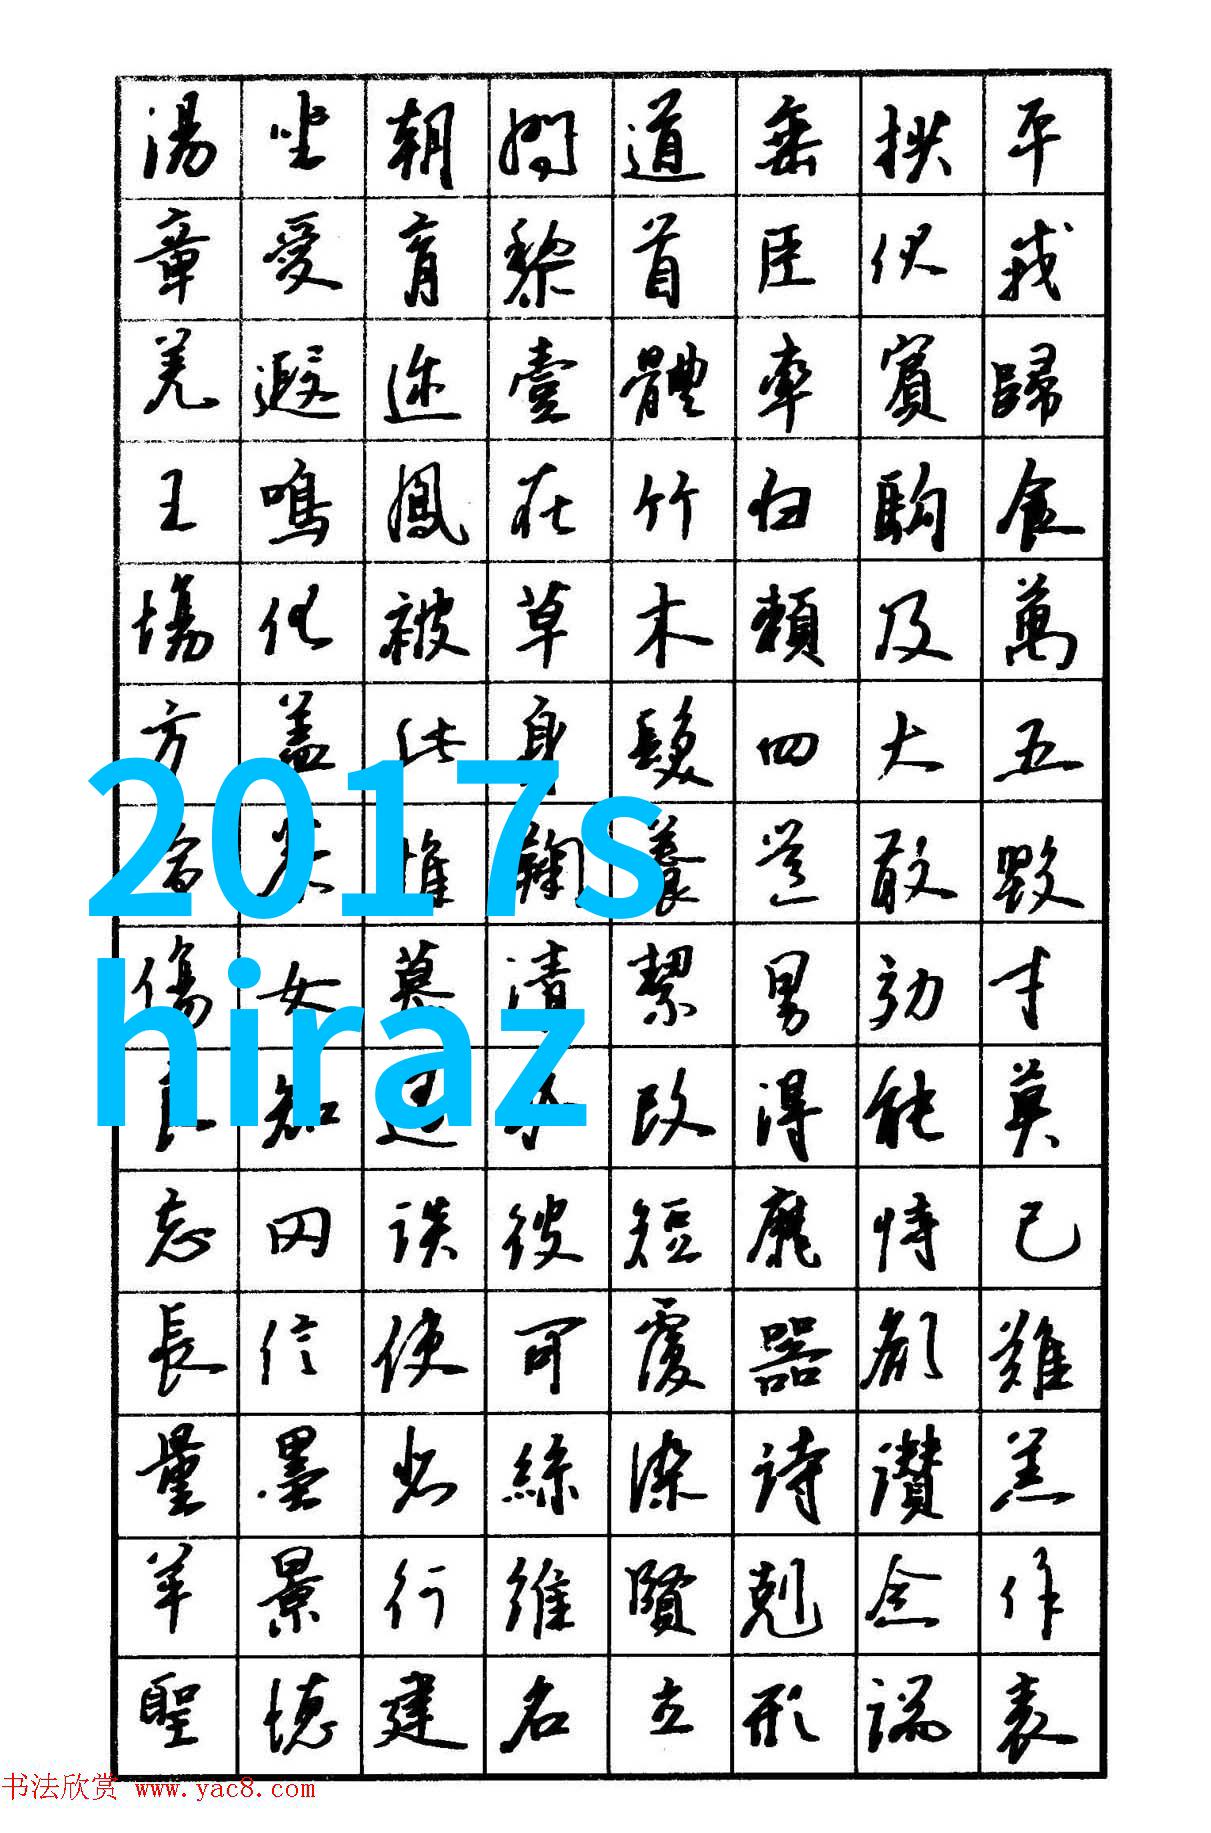 湯坐朝問道垂拱平
章愛育黎首臣伏戎
羌遐迩壹體率賓歸
王鳴鳳在竹白駒食
場化被草木賴及萬
方盖此身髮四大五
常恭惟鞠養豈敢毀
傷女慕清絜男効才
良知過必改得能莫
忘罔談彼短靡恃己
長信使可覆器欲難
量墨悲絲染詩讃羔
羊景行維賢剋念作
聖德建名立形端表
2017s
hiraz
书法欣赏 www.yac8.com